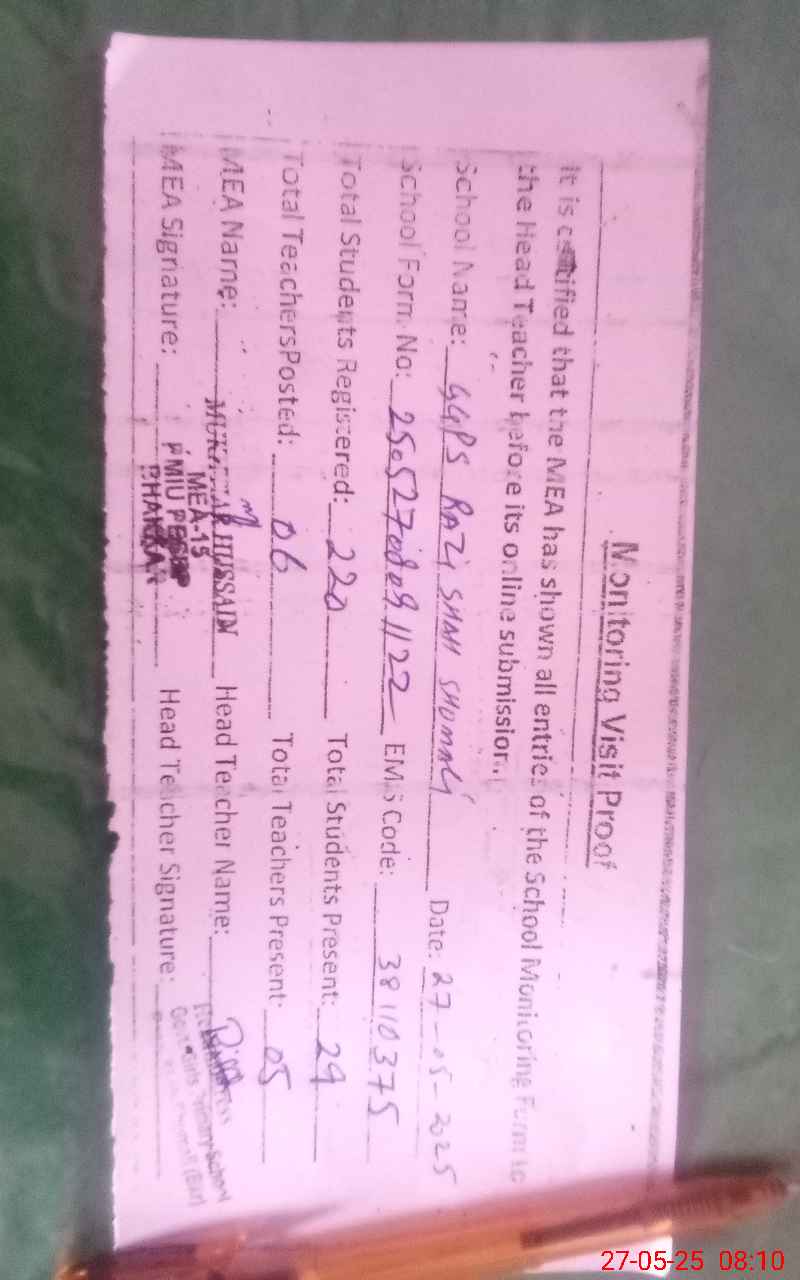 Monitoring Visit Proof
It is certified that the MEA has shown all entries of the School Monitoring Form to
the Head Teacher before its online submission.
School Name: GGPS RAZI SHAH SHUMALI Date: 27-05-2025
School Form No: 25052708091122 EMIS Code: 38110375
Total Students Registered: 220 Total Students Present: 29
Total TeachersPosted: 06 Total Teachers Present: 05
MEA Name: MUKHTAR HUSSAIN Head Teacher Name:
MEA-15
MEA Signature: PMIU PESRP Head Teacher Signature:
BHAKKAR
Headmistress
Govt Girls Primary School
27-05-25 08:10